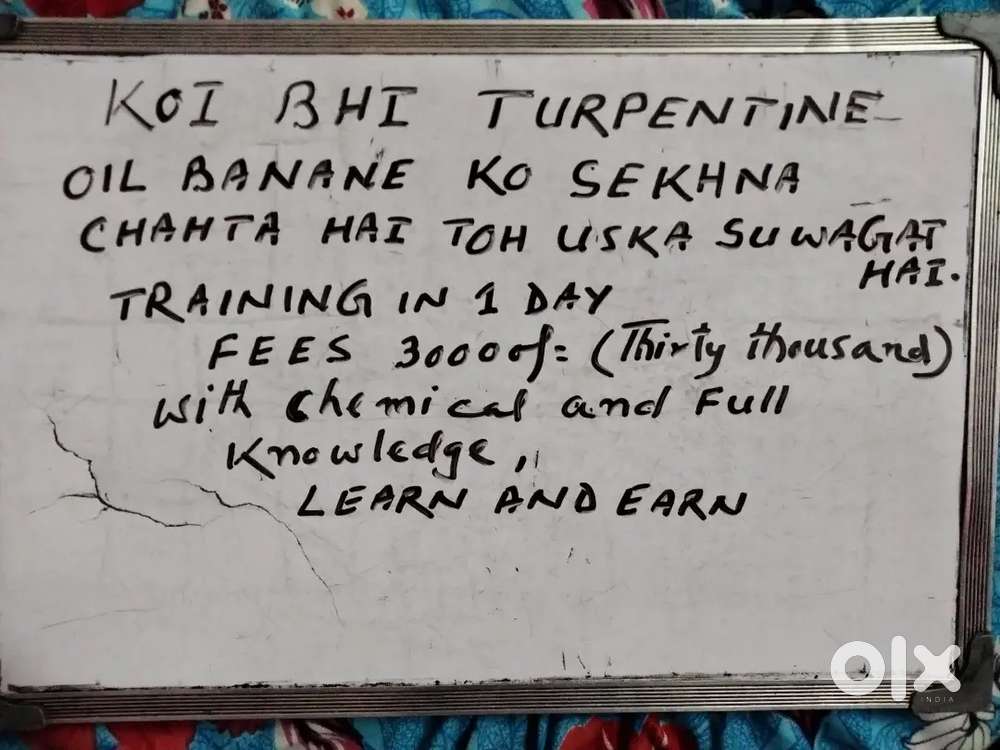 KOI BHI TURPENTINE
OIL BANANE KO SEKHNA
CHAHTA HAI TOH USKA SUWAGAT
HAI.
TRAINING IN 1 DAY
FEES 30000/= (Thirty thousand)
with chemical and Full
Knowledge,
LEARN AND EARN
olx
INDIA